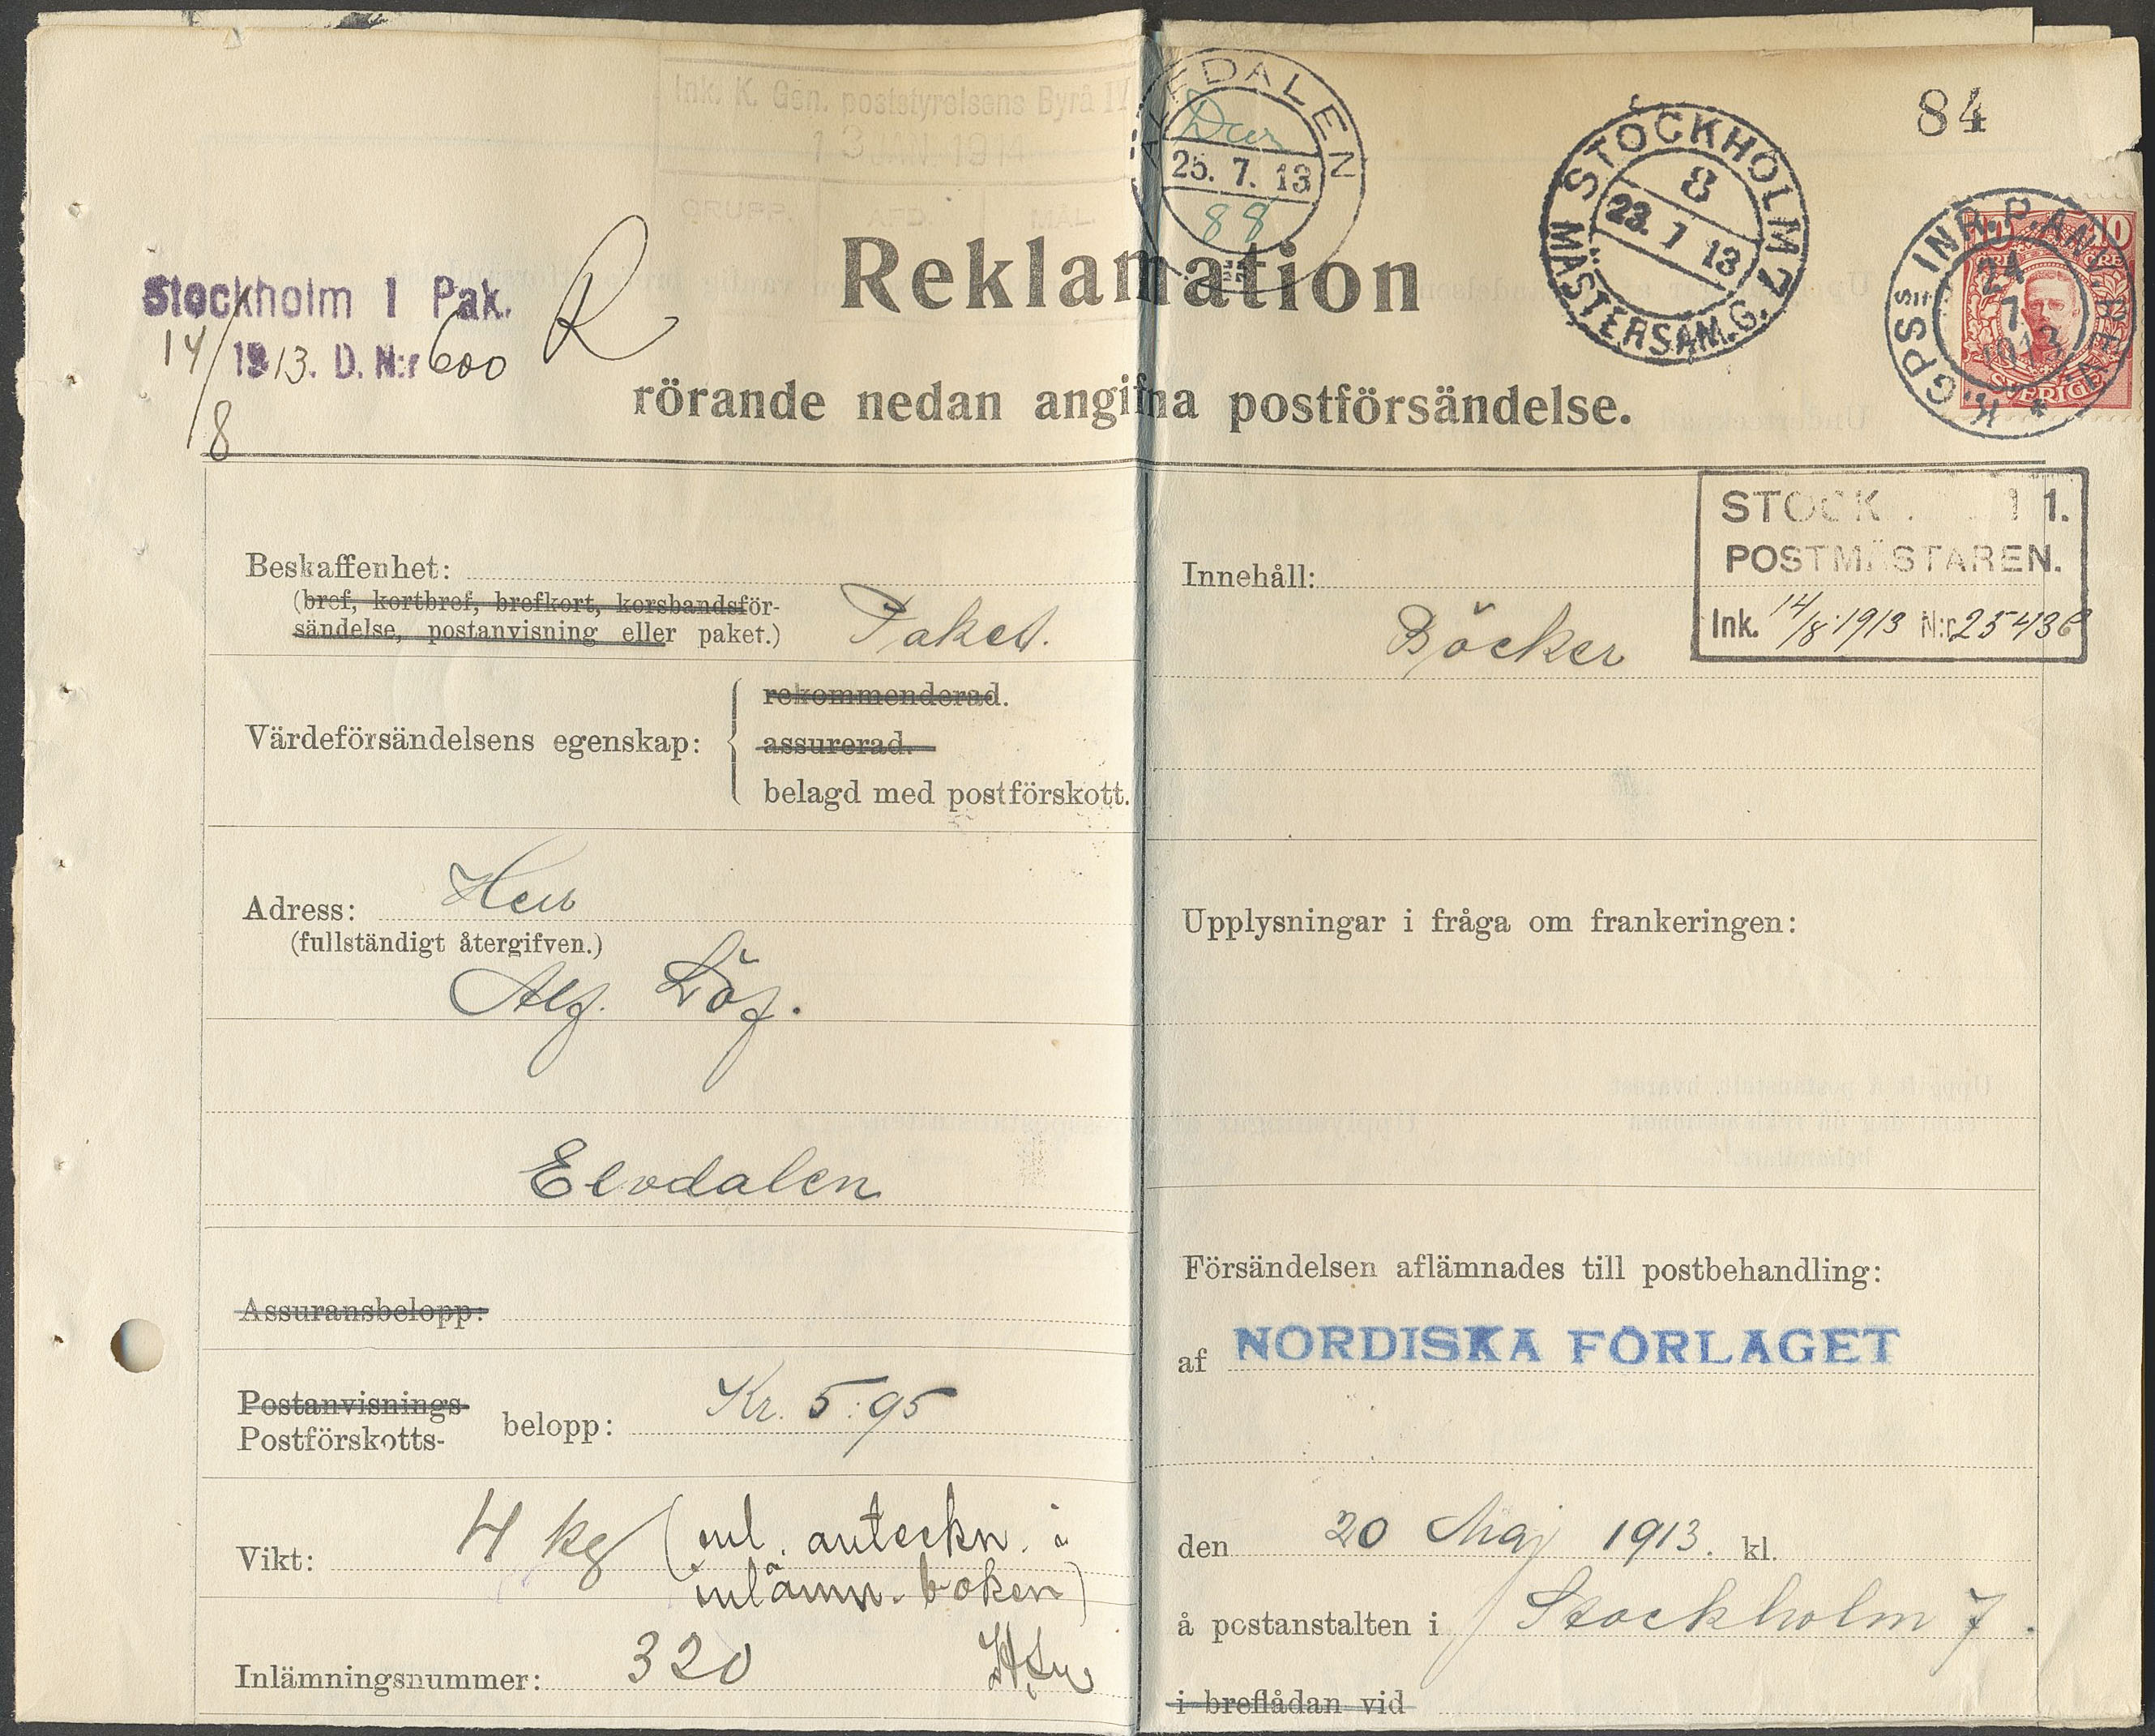 Ink. K. Gen. poststyrelsens Byrå IV
13 JAN. 1914
GRUPP. AFD. MÅL.
ÄLFDALEN
25. 7. 13
88
STOCKHOLM 7
8
23. 7 13
MÄSTERSAM.G.
84
K.GPS:S INR. P.ANV. REV.
24
7
1913
10 10
ÖRE ÖRE
SVERIGE
Stockholm 1 Pak.
14/8 1913. D. N:r 600
R
Reklamation
rörande nedan angifna postförsändelse.
STOCK 1.
POSTMÄSTAREN.
Ink. 14/8 1913 N:r 25436
Beskaffenhet:
(bref, kortbref, brefkort, korsbandsför-
sändelse, postanvisning eller paket.)
Paket.
Värdeförsändelsens egenskap:
rekommenderad.
assurerad.
belagd med postförskott.
Adress: Herr
(fullständigt återgifven.)
Alf. Löf.
Elvdalen
Assuransbelopp:
Postanvisnings-
Postförskotts- belopp: Kr. 5:95
Vikt: 4 kg (enl. anteckn. i
inlämn. boken)
Inlämningsnummer: 320
Innehåll:
Böcker
Upplysningar i fråga om frankeringen:
Försändelsen aflämnades till postbehandling:
af NORDISKA FÖRLAGET
den 20 Maj 1913. kl.
å postanstalten i Stockholm 7.
i breflådan vid